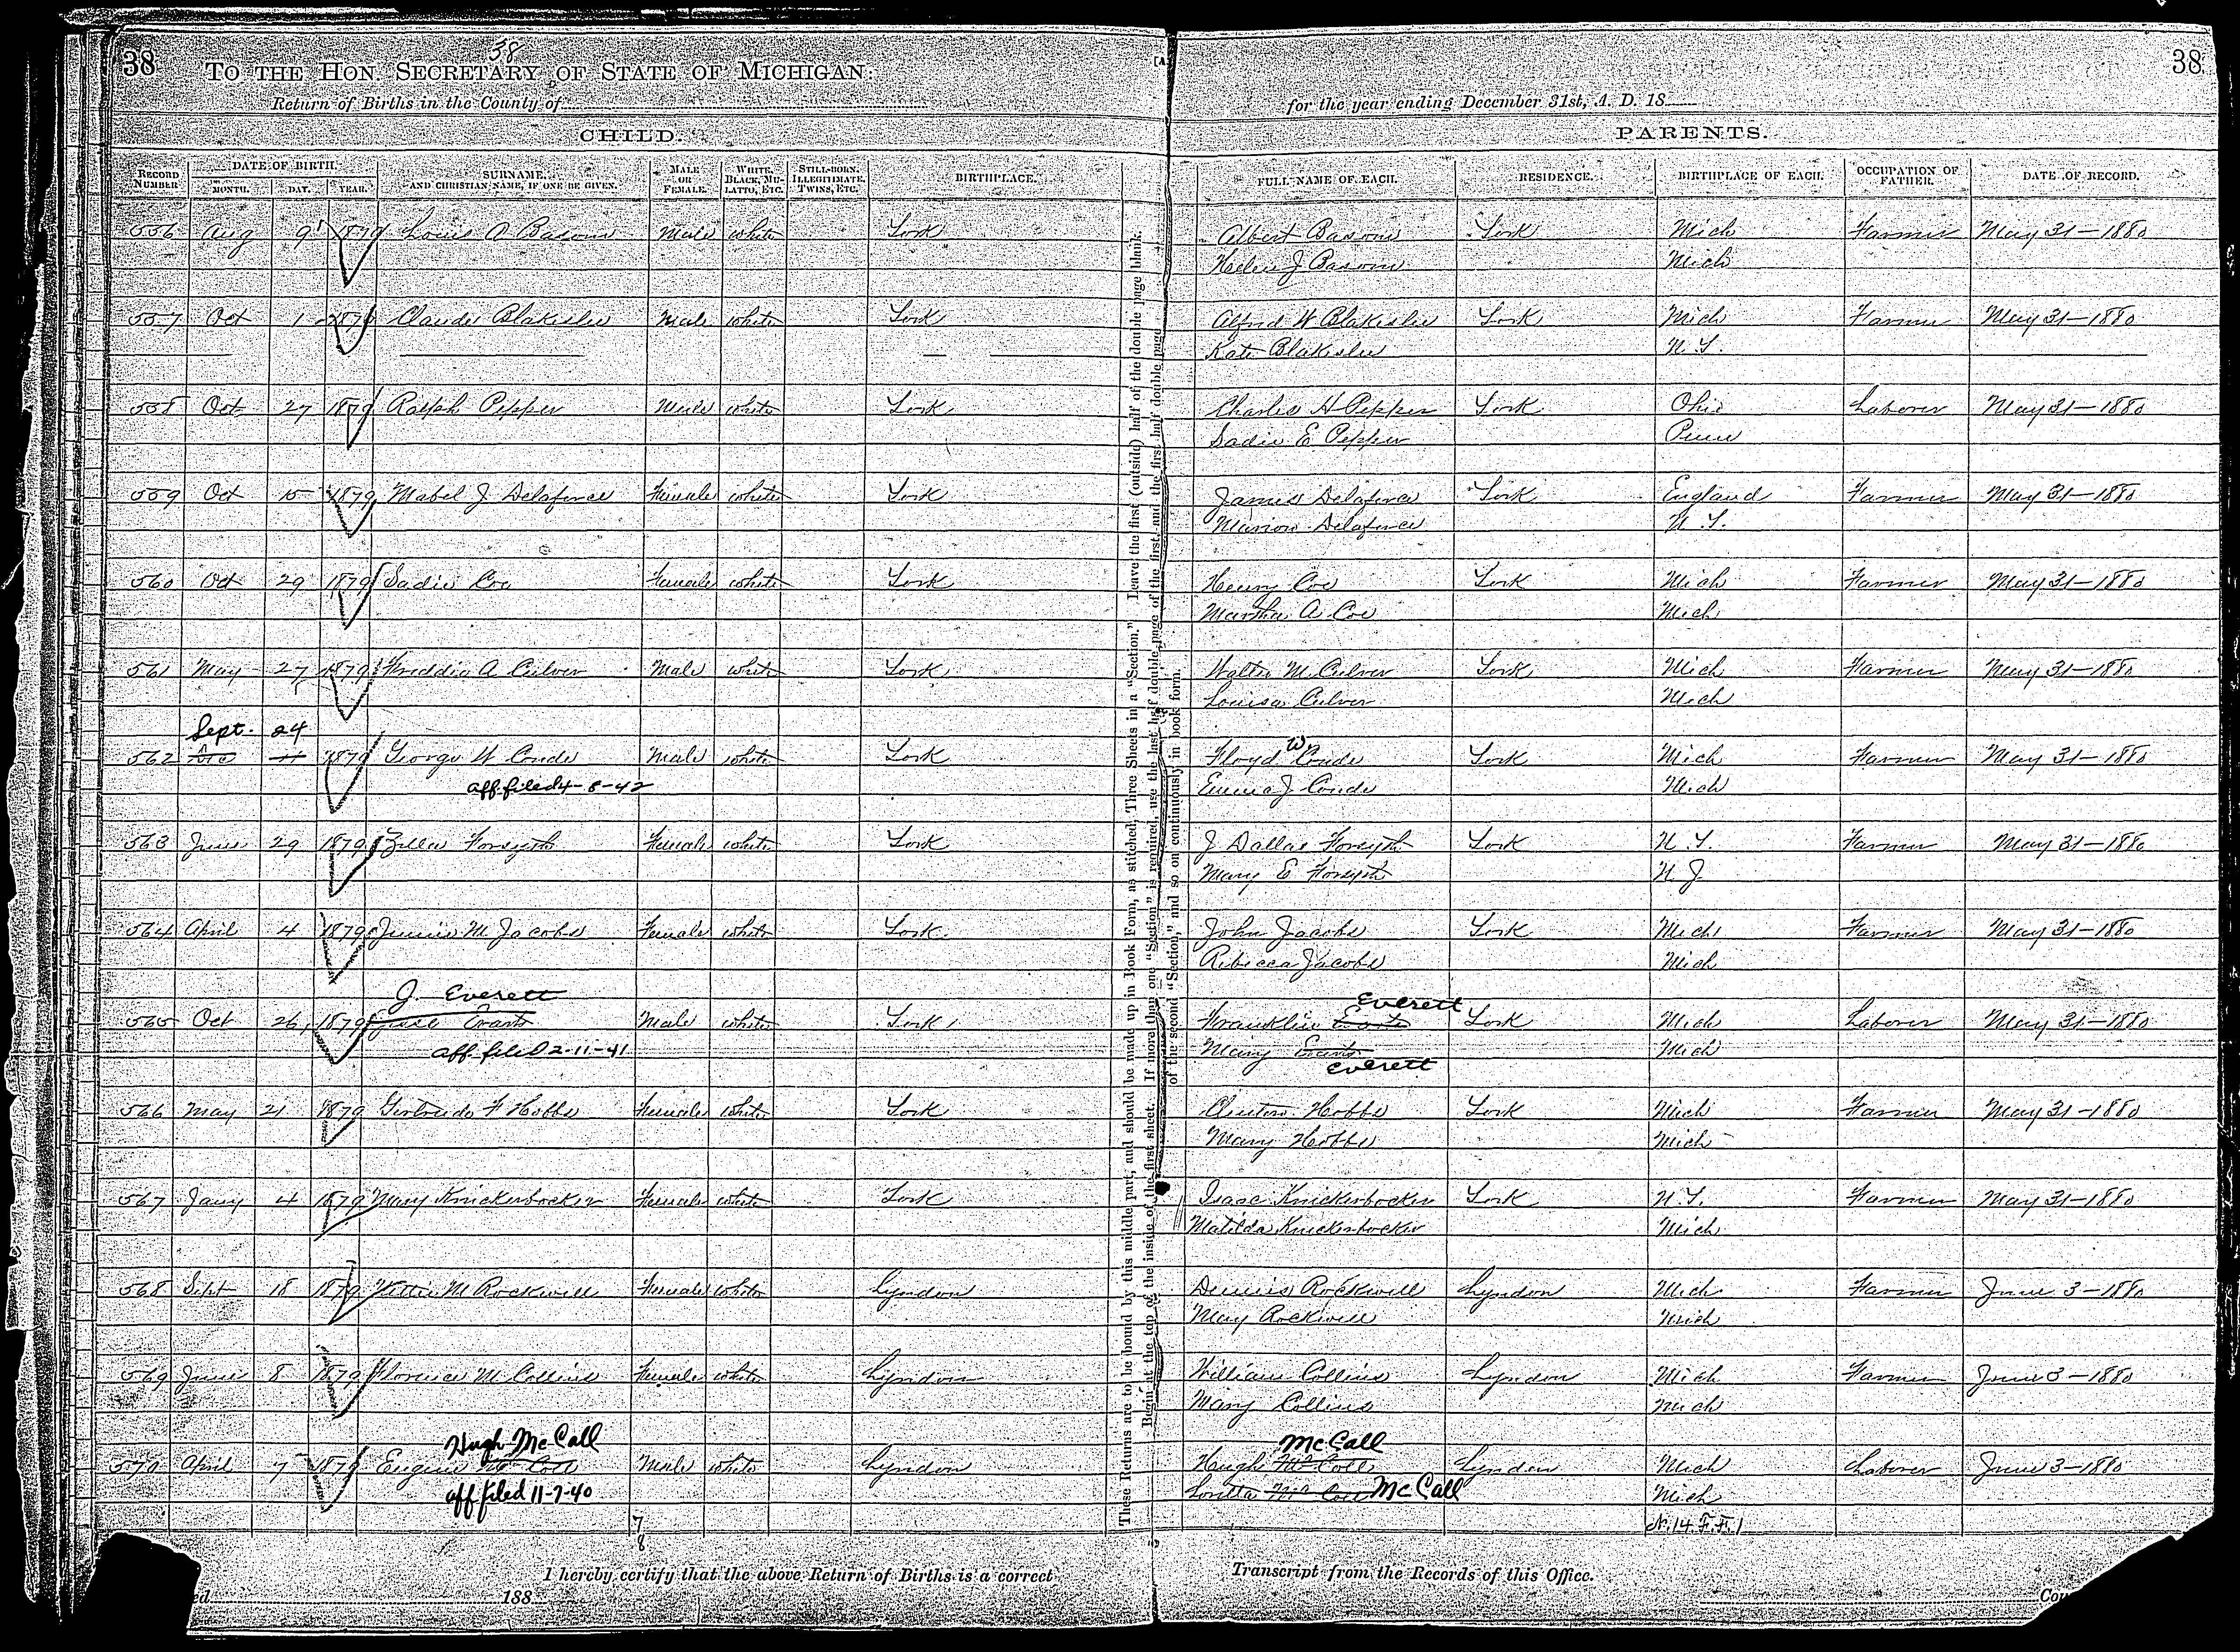 38
38
38
TO THE HON. SECRETARY OF STATE OF MICHIGAN:
Return of Births in the County of
for the year ending December 31st, A. D. 18
CHILD.
PARENTS.
RECORD NUMBER.
DATE OF BIRTH.
MONTH. DAY. YEAR.
SURNAME. AND CHRISTIAN NAME, IF ONE BE GIVEN.
MALE OR FEMALE.
WHITE, BLACK, MULATTO, ETC.
STILL-BORN, ILLEGITIMATE, TWINS, ETC.
BIRTHPLACE.
FULL NAME OF EACH.
RESIDENCE.
BIRTHPLACE OF EACH.
OCCUPATION OF FATHER.
DATE OF RECORD.
556 Aug 9 1879 Louis A Basom Male White York Albert Basom York Mich Farmer May 31-1880
Helen J Basom Mich
557 Oct 1 1879 Claude Blakeslee Male White York Alfred W Blakeslee York Mich Farmer May 31-1880
Kate Blakeslee N.Y.
558 Oct 27 1879 Ralph Pepper Male White York Charles H Pepper York Ohio Laborer May 31-1880
Sadie E Pepper Penn
559 Oct 15 1879 Mabel J Delaforce Female White York James Delaforce York England Farmer May 31-1880
Marion Delaforce N.Y.
560 Oct 29 1879 Sadie Coe Female White York Henry Coe York Mich Farmer May 31-1880
Martha A Coe Mich
561 May 27 1879 Freddie A Culver Male White York Walter M Culver York Mich Farmer May 31-1880
Louisa Culver Mich
Sept. 24
562 Dec 11 1879 George W Conde Male White York Floyd W Conde York Mich Farmer May 31-1880
aff. filed 4-8-42 Emma J Conde Mich
563 June 29 1879 Zella Forsyth Female White York J Dallas Forsyth York N.Y. Farmer May 31-1880
Mary E Forsyth N.J.
564 April 4 1879 Jennie M Jacobs Female White York John Jacobs York Mich Farmer May 31-1880
Rebecca Jacobs Mich
J. Everett Everett
565 Oct 26 1879 Jesse Evarts Male White York Franklin Evarts York Mich Laborer May 31-1880
aff. filed 2-11-41 Mary Evarts Mich
Everett
566 May 21 1879 Gertrude F Hobbs Female White York Clinton Hobbs York Mich Farmer May 31-1880
Mary Hobbs Mich
567 Jany 4 1879 Mary Knickerbocker Female White York Isaac Knickerbocker York N.Y. Farmer May 31-1880
Matilda Knickerbocker Mich
568 Sept 18 1879 Nettie M Rockwell Female White Lyndon Dennis Rockwell Lyndon Mich Farmer June 3-1880
Mary Rockwell Mich
569 June 8 1879 Florence M Collins Female White Lyndon William Collins Lyndon Mich Farmer June 3-1880
Mary Collins Mich
Hugh McCall McCall
570 April 7 1879 Eugene McColl Male White Lyndon Hugh McColl Lyndon Mich Laborer June 3-1880
aff filed 11-7-40 Loretta McColl McCall Mich
7
8
N. 14 F. F. 1
These Returns are to be bound by this middle part, and should be made up in Book Form, as stitched, Three Sheets in a "Section." Leave the first (outside) half of the double page blank.
Begin at the top of the inside of the first sheet. If more than one "Section" is required, use the last half double page of the first, and the first half double page
of the second "Section," and so on continuously in book form.
I hereby certify that the above Return of Births is a correct
Transcript from the Records of this Office.
ed 188
Cou